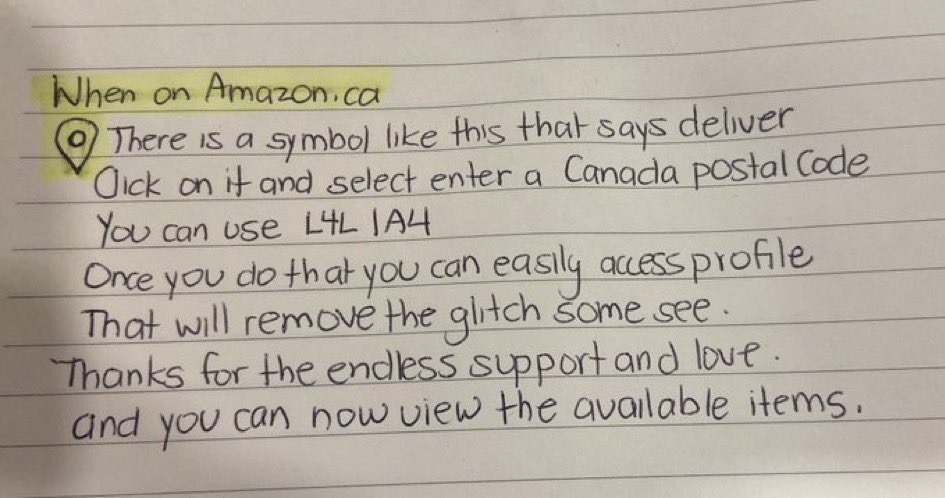 When on Amazon.ca
There is a symbol like this that says deliver
Click on it and select enter a Canada postal Code
You can use L4L 1A4
Once you do that you can easily access profile
That will remove the glitch some see.
Thanks for the endless support and love.
and you can now view the available items.